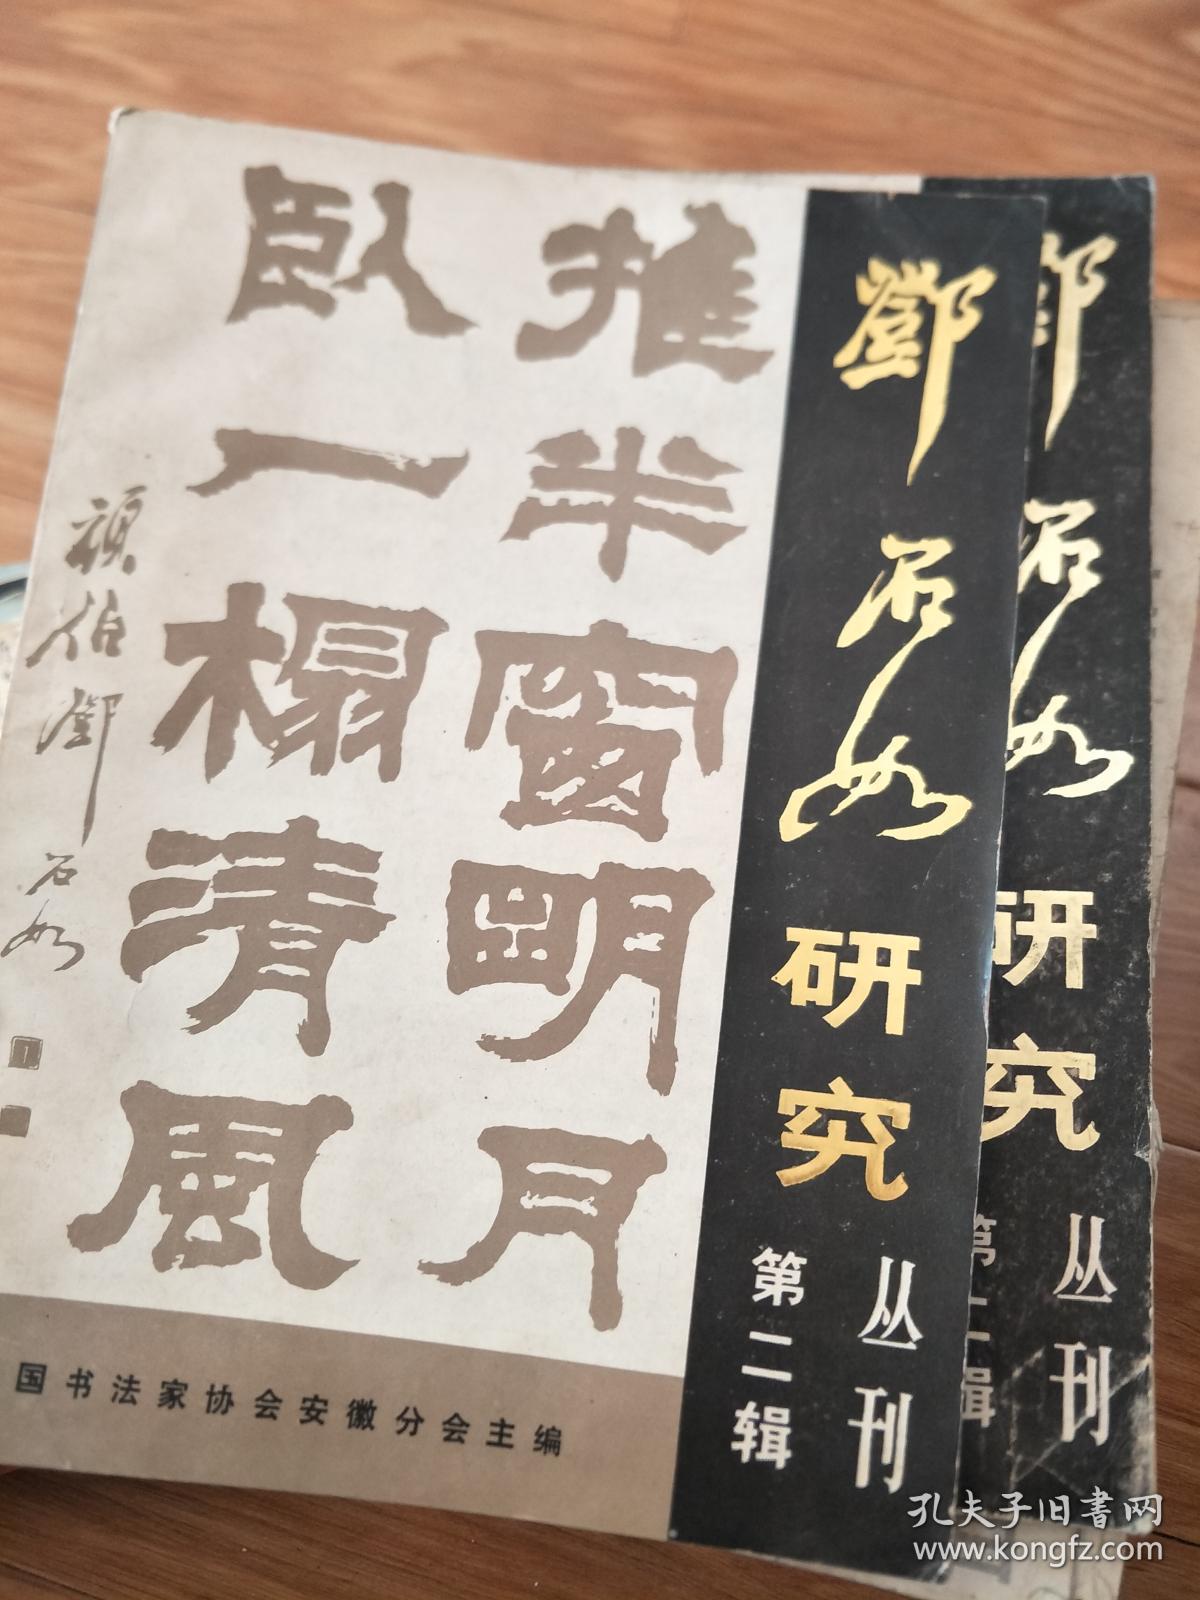 推半窗明月
臥一榻清風
頑伯鄧石如
鄧石如研究
丛刊
第二辑
国书法家协会安徽分会主编
鄧石如研究
丛刊
第二辑
孔夫子旧书网
www.kongfz.com